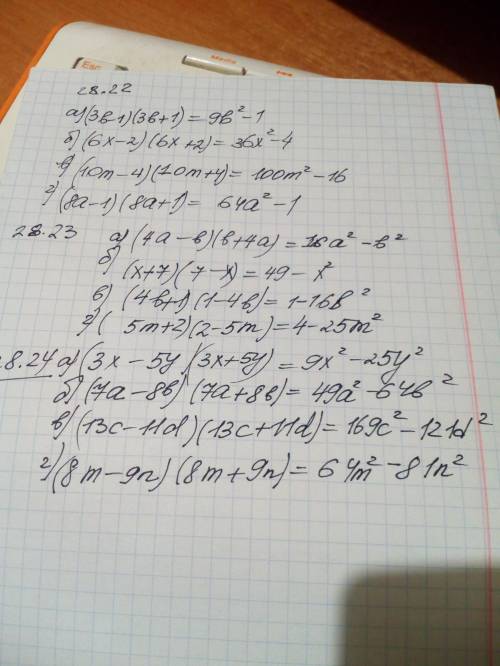 Esc
Media
28.22
а) (3в-1)(3в+1) = 9в²-1
б) (6x-2)(6x+2) = 36x²-4
в) (10m-4)(10m+4) = 100m²-16
г) (8a-1)(8a+1) = 64a²-1
28.23 а) (4a-в)(в+4a) = 16a²-в²
б) (x+7)(7-x) = 49-x²
в) (4в+1)(1-4в) = 1-16в²
г) (5m+2)(2-5m) = 4-25m²
28.24 а) (3x-5y)(3x+5y) = 9x²-25y²
б) (7a-8в)(7a+8в) = 49a²-64в²
в) (13c-11d)(13c+11d) = 169c²-121d²
г) (8m-9n)(8m+9n) = 64m²-81n²